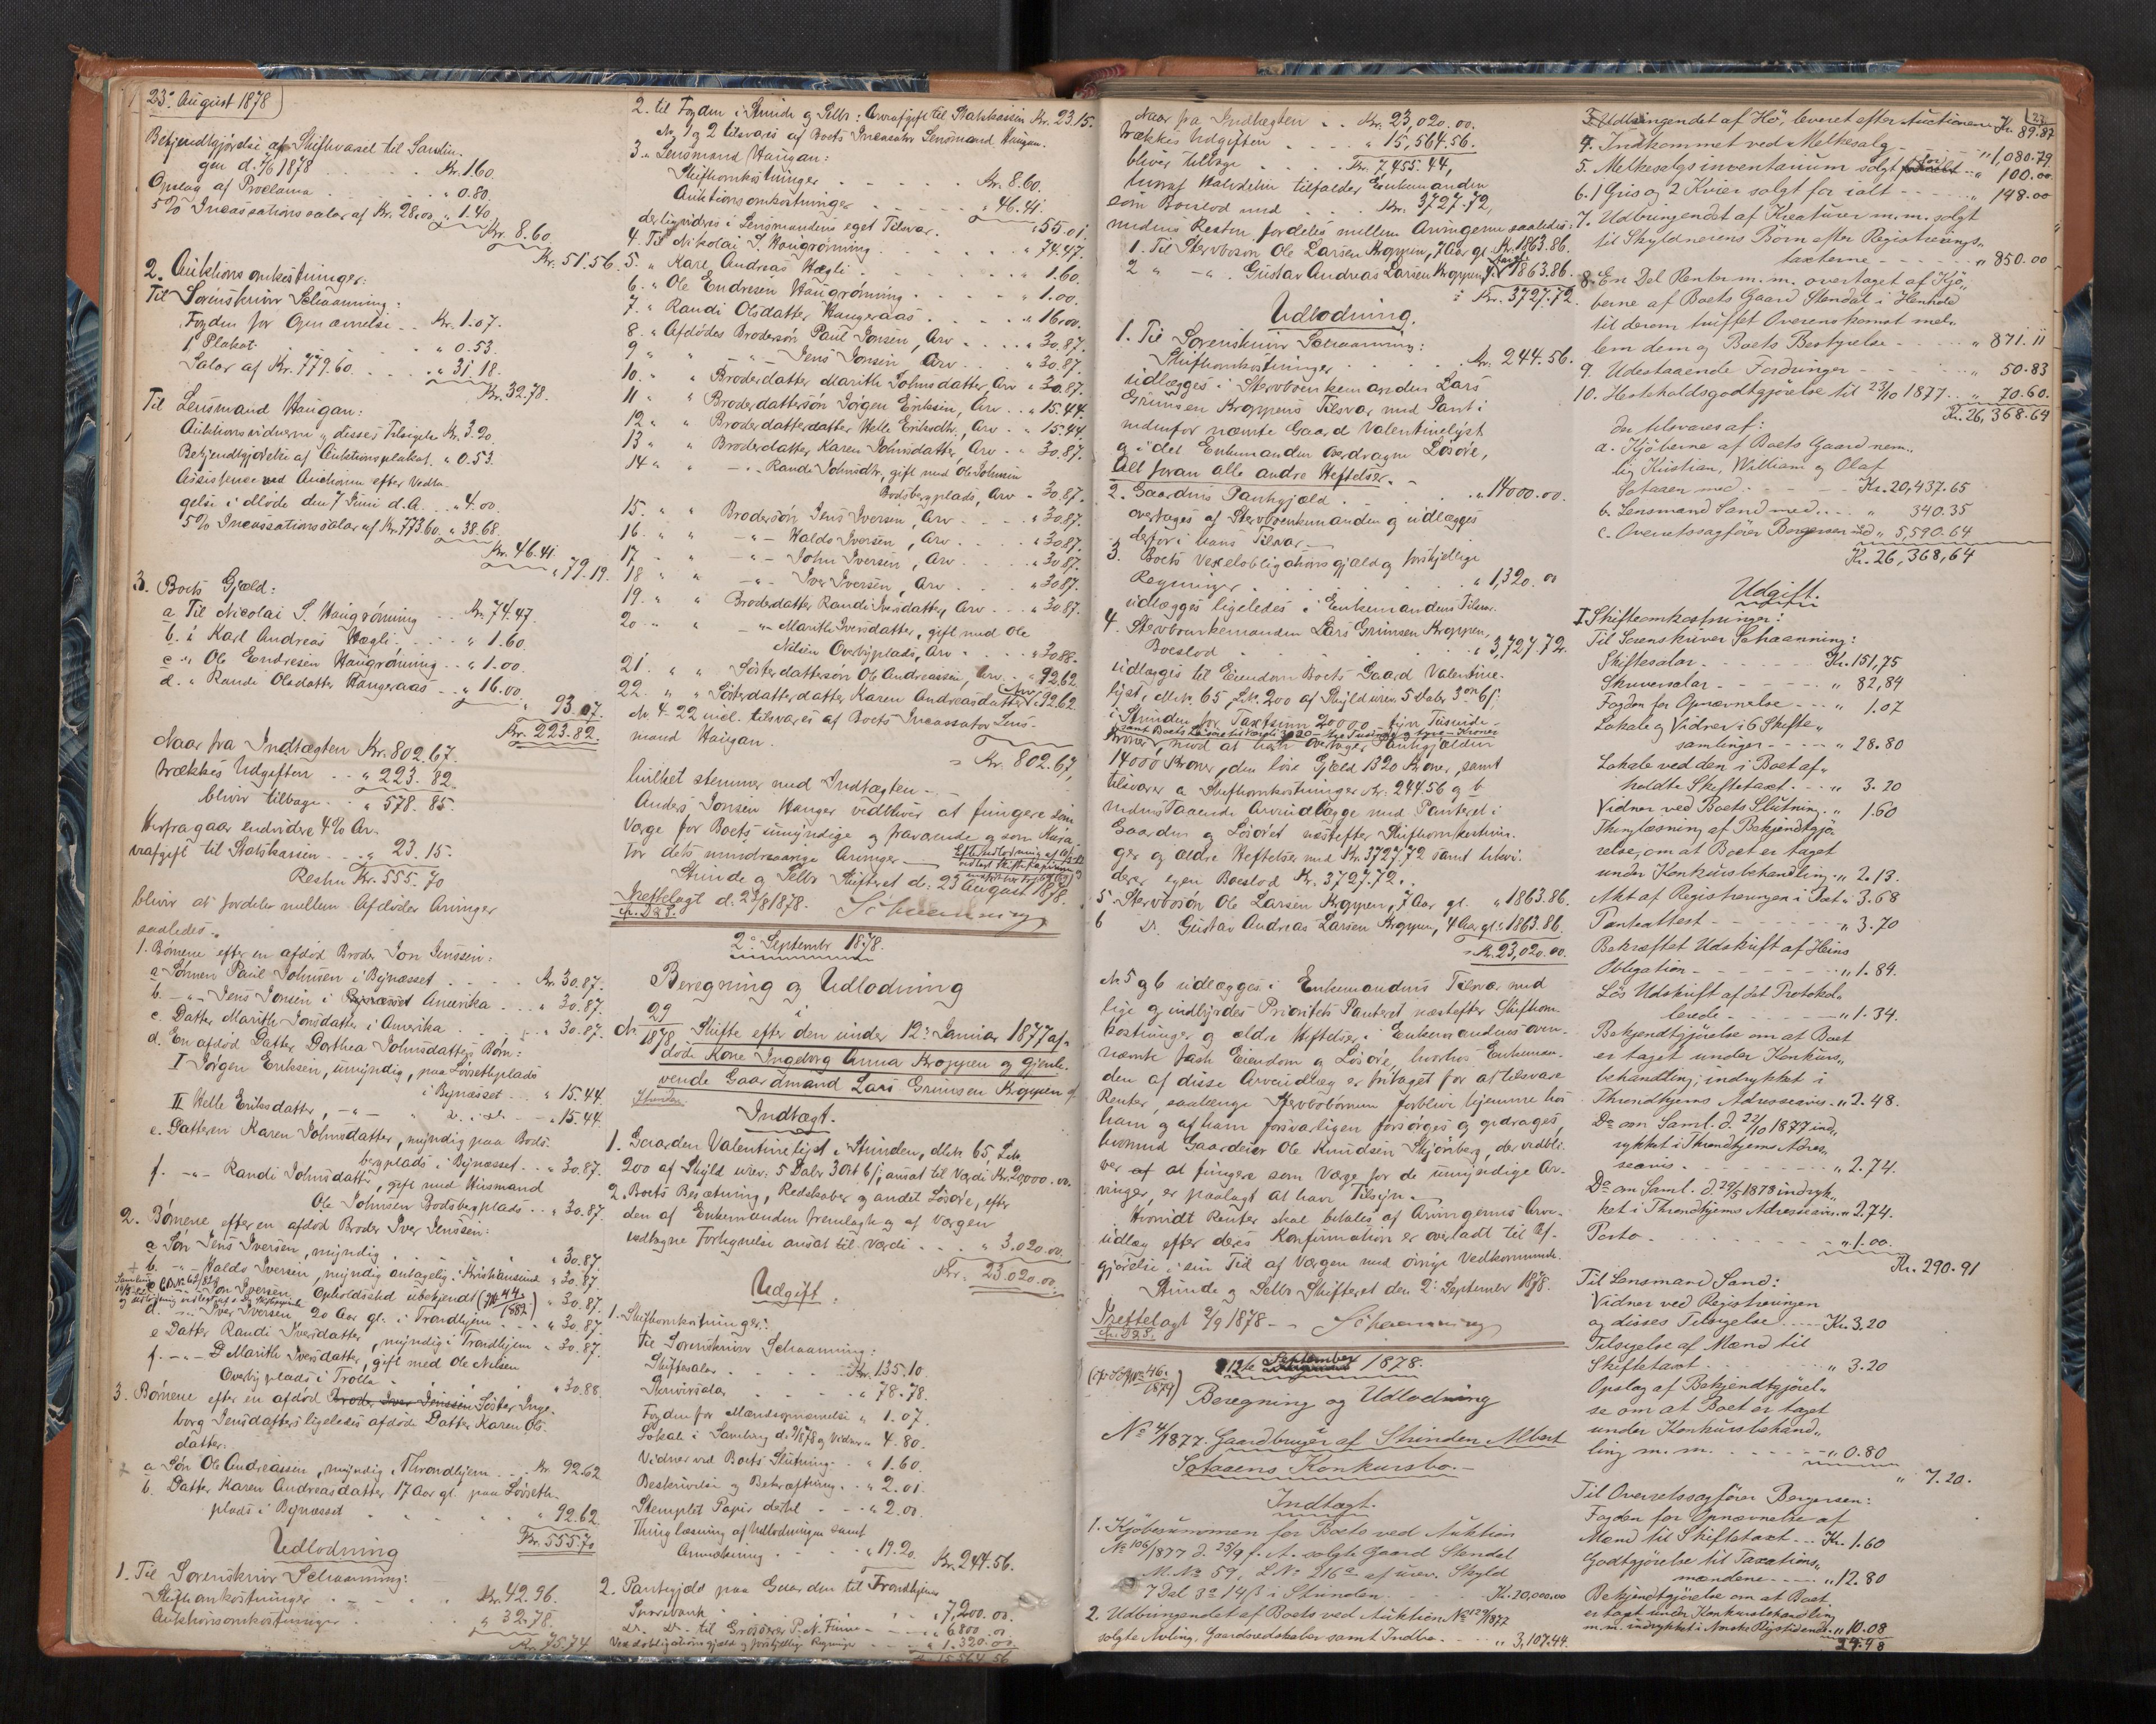 23. August 1878
Bekjendtgjørelse af Skiftevarsel til Samlin-
gen d. 7/6 1878 . . . Kr. 1.60
Opslag af Proclama . . . " 0.80.
5% Incassationssalær af Kr. 28.00 " 1.40
Kr. 8.60
Kr. 51.56
2. Auktionsomkostninger:
Til Sorenskriver Schaanning:
Fogden for Opnævnelse . . Kr. 1.07.
1 Plakat . . . " 0.53.
Salær af Kr. 779.60 . . . " 31.18.
Kr. 32.78.
Til Lensmand Haugan:
Auktionsvidnerne og disses Tilsigelse Kr. 3.20.
Bekjendtgjørelse af Auktionsplakat " 0.53.
Assistence ved Auctionen efter Vedta-
gelse i Møde den 7 Juni d.A. . . " 4.00.
5% Incassationssalær af Kr. 773.60 " 38.68.
Kr. 46.41.
" 79.19.
3. Boets Gjæld:
a Til Nicolai S. Haugrønning . . Kr. 74.47.
b. " Karl Andreas Hægli . . . " 1.60.
c " Ole Endresen Haugrønning . . " 1.00.
d. " Rande Olsdatter Haugeraas . . " 16.00.
" 93.07.
Kr. 223.82.
Naar fra Indtægten Kr. 802.67.
trækkes Udgiften . . " 223.82.
bliver tilbage . . " 578.85.
Herfra gaar endvidere 4% Ar-
veafgift til Statskassen . . . " 23.15.
Resten Kr. 555.70
bliver at fordele mellem Afdødes Arvinger
saaledes:
1. Børnene efter en afdød Broder Jon Jenssen:
a Sønnen Paul Johnsen i Bynæsset . . . Kr. 30.87.
b. -"- Jens Jonsen i Amerika . . . " 30.87.
c. Datter Marith Jonsdatter i Amerika . . . " 30.87.
d. En afdød Datter Dorthea Johnsdatters Børn:
I Jørgen Eriksen, umyndig, paa Løvsethplads
i Bynæsset . . " 15.44.
II Helle Eriksdatter, -"- " 15.44.
e. Datteren Karen Johnsdatter, myndig paa Bods-
bergplads i Bynæsset . . " 30.87.
f. -"- Randi Johnsdatter, gift med Husmand
Ole Johnsen Bodsbergplads . . " 30.87.
2. Børnene efter en afdød Broder Iver Jenssen:
a Søn Jens Iversen, myndig . . . " 30.87.
b. -"- Haldo Iversen, myndig antagelig i Kristiansund " 30.87.
c -"- Jon Iversen Opholdssted ubekjendt " 30.87.
d. -"- Iver Iversen 20 Aar gl. i Trondhjem . . . " 30.87.
e Datter Randi Iversdatter, myndig i Trondhjem " 30.87.
f. -"- D. Marith Iversdatter, gift med Ole Nilsen
Overbyplads i Trolla . . . " 30.88.
3. Børnene efter en afdød Broder Iver Jenssen Søster Inge-
borg Jensdatters ligeledes afdøde Datter Karen Ols-
datter:
a Søn Ole Andreassen, myndig, Throndhjem . . Kr. 92.62
b. Datter Karen Andreasdatter 17 Aar gl. paa Løvseth-
plads i Bynæsset . . . " 92.62.
Kr. 555.70
Udlodning
1. Til Sorenskriver Schaanning:
Skifteomkostninger . . . Kr. 42.96.
Auktionsomkostninger . . . " 32.78.
Kr. 75.74
2. til Fogden i Strinde og Selbo: Arveafgift til Statskassen Kr. 23.15.
No 1 og 2 tilsvares af Boets Incassator Lensmand Haugan.
3. " Lensmand Haugan:
Skifteomkostninger . . . Kr. 8.60.
Auktionsomkostninger . . . " 46.41.
der lignedes i Lensmandens eget Tilsvar. " 55.01.
4. Til Nikolai S. Haugrønning . . . " 74.47.
5. " Karl Andreas Hægli . . . " 1.60.
6. " Ole Endresen Haugrønning . . . " 1.00.
7. " Randi Olsdatter Haugeraas . . . " 16.00.
8. " Afdødes Brodersøn Paul Jonsen, Arv . . . " 30.87.
9 " " -"- Jens Jonsen, Arv . . . " 30.87.
10. " " Broderdatter Marith Johnsdatter, Arv " 30.87.
11 " " Broderdattersøn Jørgen Eriksen, Arv . . " 15.44.
12 " " Broderdatterdatter Helle Eriksdtr., Arv . " 15.44.
13 " " Broderdatter Karen Johnsdatter, Arv . " 30.87.
14 " " -"- Randi Johnsdtr., gift med Ole Johnsen
Bodsbergplads, Arv " 30.87.
15. " " Brodersøn Jens Iversen, Arv . . . " 30.87.
16. " " -"- Haldo Iversen, Arv . . . " 30.87.
17 " " -"- John Iversen, Arv . . . " 30.87.
18 " " -"- Iver Iversen, Arv . . . " 30.87.
19. " " Broderdatter Randi Iversdatter, Arv . . " 30.87.
20 " " -"- Marith Iversdatter, gift med Ole
Nilsen Overbyplads, Arv . . . " 30.88.
21. " " Søsterdattersøn Ole Andreassen, Arv . . " 92.62.
22. " " Søsterdatterdatter Karen Andreasdatter Arv " 92.62.
No. 4-22 incl. tilsvares af Boets Incassator Lens-
mand Haugan.
Kr. 802.67,
hvilket stemmer med Indtægten. -
Anders Jonsen Hanger vedbliver at fungere som
Værge for Boets umyndige og fraværende og som Kura-
tor for dets mindreaarige Arvinger -
Strinde og Selbo Skifteret d: 23 August 1878.
Schaanning
Fremlagt d. 23/8 1878.
2. September 1878.
Beregning og Udlodning
i
No. 29/1878 Skifte efter den under 12. Januar 1877 af-
døde Kone Ingeborg Anna Kroppen og gjenle-
vende Gaardmand Lars Grimsen Kroppen af
Strinden.
Indtægt.
1. Gaarden Valentinelyst i Strinden, Mtk. 65, Lb.
200 af Skyld urev. 5 Daler 3 Ort 6 ß, ansat til Værdi Kr. 20,000.00.
2. Boets Besætning, Redskaber og andet Løsøre, efter
den af Enkemanden fremlagte og af Værgen
vedtagne Fortegnelse ansat til Værdi . . . " 3.020.00.
Kr. 23.020.00.
Udgift:
1. Skifteomkostninger:
Til Sorenskriver Schaanning:
Skiftesalær . . . Kr. 135.10
Skriversalær . . . " 78.78.
Fogden for Mændsopnævnelse " 1.07.
Lokale i Samling d. 7/1878 og Vidner " 4.80.
Vidner ved Boets Slutning . " 1.60.
Beskrivelse og Bekræftning . " 2.01.
Stemplet Papir dertil . . . " 2.00.
Thinglæsning af Udlodningen samt
Anmærkning . . . " 19.20.
Kr. 244.56.
2. Pantegjæld paa Gaarden til Trondhjems
Sparebank . . . " 7,200.00.
do. do. til Grosserer P. N. Finne . . " 6800.00
Vexelobligationsgjæld og forskjellige Regninger . . . " 1.320.00
Kr. 15.564.56
Naar fra Indtægten . . Kr. 23,020.00.
trækkes Udgiften . . . " 15,564.56.
bliver tilbage . . . Kr. 7,455.44,
hvoraf Halvdelen tilfalder Enkemanden
som Boeslod med . . . Kr. 3727.72,
medens Resten fordeles mellem Arvingerne saaledes:
1. Til Stervbosøn Ole Larsen Kroppen, 7 Aar gl. Kr. 1863.86.
2 " -"- Gustav Andreas Larsen Kroppen " 1863.86.
Kr. 3727.72.
Udlodning.
1. Til Sorenskriver Schaanning:
Skifteomkostninger . . . Kr. 244.56.
udlægges i Stervboenkemanden Lars
Grimsen Kroppens Tilsvar med Pant i
nedenfor nævnte Gaard Valentinelyst
og i det Enkemanden overdragne Løsøre,
Alt foran alle andre Heftelser. -
2. Gaardens Pantegjæld . . . " 14000.00.
overtages af Stervboenkemanden og udlægges
derfor i hans Tilsvar -
3. Boets Vexelobligationsgjæld og forskjellige
Regninger . . . " 1,320.00
udlægges ligeledes i Enkemandens Tilsvar.
4. Stervboenkemanden Lars Grimsen Kroppen,
Boeslod . . . " 3,727.72.
udlægges til Eiendom Boets Gaard Valentine-
lyst, Mtk. 65 Lb. 200 af Skyld urev. 5 Daler 3 Ort 6 ß,
i Strinden for Taxtsum 20000 - tyve Tusinde -
samt Boets Løsøre til Værdi 3020 - tre Tusinde og tyve - Kroner
Kroner, mod at han overtager Pantegjælden
14000 Kroner, den løse Gjæld 1320 Kroner, samt
tilsvarer a Skifteomkostninger Kr. 244.56 og b
nedenstaaende Arveudlægge med Panteret i
Gaarden og Løsøret næstefter Skifteomkostnin-
ger og ældre Heftelser med Kr. 3727.72 samt tilsva-
rer egen Boeslod Kr. 3727.72.
5. Stervbosøn Ole Larsen Kroppen, 7 Aar gl. " 1863.86.
6 Do. Gustav Andreas Larsen Kroppen, 4 Aar gl. " 1863.86.
Kr. 23,020.00.
No 5 og 6 udlægges i Enkemandens Tilsvar med
lige og indbyrdes Prioritets Panteret næstefter Skifteom-
kostninger og ældre Heftelser i Enkemandens oven-
nævnte faste Eiendom og Løsøre, hvorhos Enkeman-
den af disse Arveudlæg er fritaget for at tilsvare
Renter, saalænge Stervbobørnene forblive hjemme hos
ham og af ham forsvarligen forsørges og opdrages,
hvormed Gaardeier Ole Knudsen Skjørsberg, der vedbli-
ver at fungere som Værge for de umyndige Ar-
vinger, er paalagt at have Tilsyn. -
Hvorvidt Renter skal betales af Arvingernes Arve-
udlæg efter deres Konfirmation er overladt til Af-
gjørelse i sin Tid af Værgen med øvrige Vedkommende.
Strinde og Selbo Skifteret den 2. September 1878.
Schaanning
Fremlagt 2/9 1878 -
12te September 1878.
Beregning og Udlodning
i
No 4/1877. Gaardbruger af Strinden Albert
Sataaens Konkursbo. -
Indtægt.
1. Kjøbesummen for Boets ved Auktion
No 106/1877 d. 25/9 f. A. solgte Gaard Stendal
M. No 59, L. No 216a af urev. Skyld
7 Dal 3 o 14 ß i Strinden . . . Kr. 20,000.00
2. Udbringendet af Boets ved Auktion No 129/1877
solgte Avling, Gaardsredskaber samt Indbo . . . " 3,107.44.
3. Udbringendet af Hø, leveret efter Auctionen Kr. 89.87
4. Indkommet ved Melkesalg . . . " 1,080.79
5. Melkesalgsinventarium solgt for " 100.00
6. 1 Gris og 2 Kvier solgt for ialt . . . " 148.00
7. Udbringendet af Kreaturer m. m. solgt
til Skyldnerens Børn efter Registrerings-
taxterne . . . " 850.00
8. Ene Del Renter m. m. overtaget af Kjø-
berne af Boets Gaard Stendal i Henhold
til derom truffet Overenskomst mel-
lem dem og Boets Bestyrelse . . . " 871.11
9. Udestaaende Fordringer . . . " 50.83
10. Hesteholdsgodtgjørelse til 23/10 1877 . . " 70.60.
Kr. 26,368.64
der tilsvares af:
a. Kjøberne af Boets Gaard nem-
lig Kristian, William og Olaf
Sataaen med . . . Kr. 20,437.65
b. Lensmand Sand med . . . " 340.35
c. Overretssagfører Bergersen med " 5,590.64
Kr. 26,368,64
Udgift.
I Skifteomkostninger:
Til Sorenskriver Schaanning:
Skiftesalær . . . Kr. 151,75
Skriversalær . . . " 82,84
Fogden for Opnævnelse . . . " 1.07
Lokale og Vidner i 6 Skifte-
samlinger . . . " 28.80
Lokale ved den i Boet af-
holdte Skiftetaxt . . . " 3.20
Vidner ved Boets Slutning . " 1.60
Thinglæsning af Bekjendtgjø-
relse, om at Boet er taget
under Konkursbehandling " 2.13.
Akt af Registreringen i Boet " 3.68
Panteattest . . . " 3.70
Bekræftet Udskrift af Heins
Obligation . . . " 1.84.
Løs Udskrift af det Protokol-
lerede . . . " 1.34.
Bekjendtgjørelse om at Boet
er taget under Konkurs-
behandling, indrykket i
Throndhjems Adresseavis " 2.48.
Do om Saml. d. 22/10 1877 ind-
rykket i Throndhjems Adres-
seavis . . . " 2.74.
Do om Saml. d. 29/5 1878 indryk-
ket i Throndhjems Adresseavis " 2.74.
Porto . . . " 1.00.
Kr. 290.91
Til Lensmand Sand:
Vidner ved Registreringen
og disses Tilsigelse . . . Kr. 3.20
Tilsigelse af Mænd til
Skiftetaxt . . . " 3.20
Opslag af Bekjendtgjørel-
se om at Boet er taget
under Konkursbehand-
ling m. m. . . . " 0.80
" 7.20.
Til Overretssagfører Bergersen:
Fogden for Opnævnelse af
Mænd til Skiftetaxt . . . Kr. 1.60
Godtgjørelse til Taxations-
mændene . . . " 12.80
Bekjendtgjørelse om at Boet
er taget under Konkursbehandling
m.m. indrykket i Norske Rigstidende " 10.08
24.48